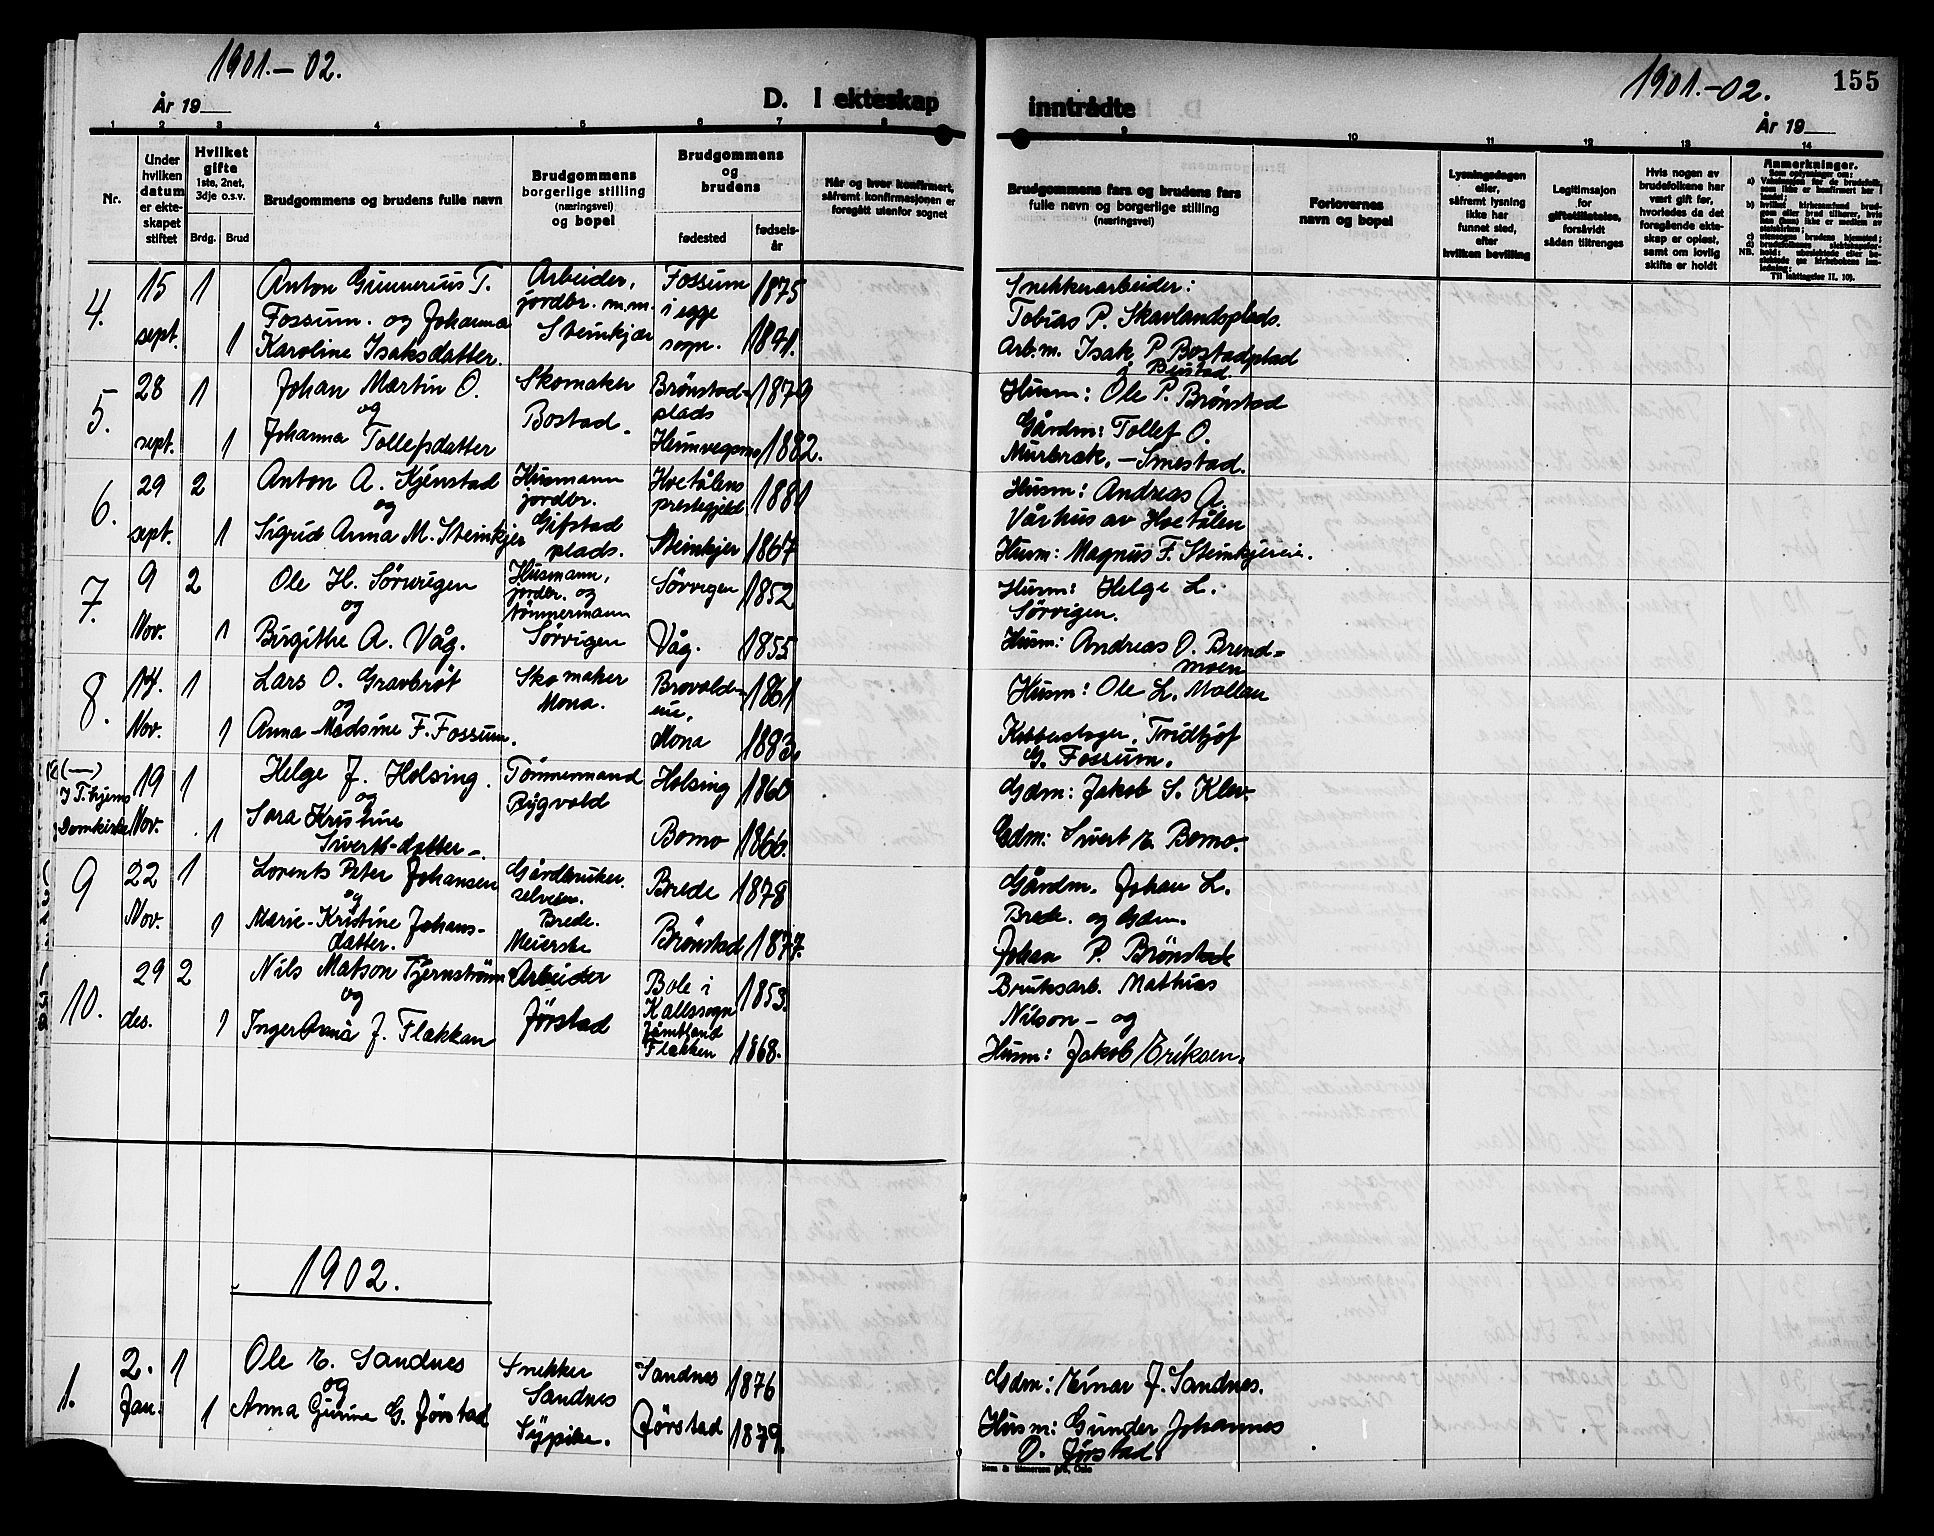 1901.-02.
År 19
D. I ekteskap
1 2 3 4 5 6 7 8
Nr.
Under hvilken datum er ekteskapet stiftet
Hvilket gifte 1ste, 2net, 3dje o.s.v.
Brdg. Brud
Brudgommens og brudens fulle navn
Brudgommens borgerlige stilling (næringsvei) og bopel
Brudgommens og brudens
fødested
fødselsår
Når og hvor konfirmert, såfremt konfirmasjonen er foregått utenfor sognet
4. 15 1 Anton Gunnerius T. Arbeider, Fossum 1875
Fossum. og Johanna jordbr. m.m. i egge
sept. 1 Karoline Isaksdatter. Steinkjær sogn. 1841.
5. 28 1 Johan Martin O. Skomaker Brönstad- 1879
og Bostad. plads
sept. 1 Johanna Tollefsdatter 1882.
6. 29 2 Anton A. Kjenstad Husmann Hoetålens 1881
og jordbr. prestegjeld
sept. 1 Sigrud Anna M. Steinkjer Gifstad plads. Steinkjer 1867
7. 9 2 Ole H. Sörvigen Husmann, Sörvigen 1852
og jordbr. og tömmermann
Nov. 1 Birgithe A. Våg. Sörvigen Våg. 1855
8. 14. 1 Lars O. Gravbröt Skomaker 1861
og Mona.
Nov. 1 Anna Madsine F. Fossum. Mona 1883.
(—) 19 1 Helge J. Holsing. Tömmermand Holsing 1860
I T.hjems og Rygvold
Domkirke Nov. 1 Sara Kristine
Sivertsdatter -. Bomo 1866.
9 22 1 Lorents Peter Johansen Gårdbruker. Brede 1878
og selveier.
Nov. 1 Marie-Kristine Johans- Brede. Brönstad 1877.
datter. Meierske
10. 29 2 Nils Matson Tjernström Arbeider Bole i 1853.
og Kallssogn
des. 1 Inger Anna J. Flakkan Jörstad Jämtland
Flakken 1868.
1902.
1. 2. 1 Ole E. Sandnes Snekker Sandnes 1876
og Sandnes
Jan. 1 Anna Gurine G. Jörstad Sypike. Jörstad 1879.
1901.-02.
155
inntrådte
År 19
9 10 11 12 13 14
Brudgommens fars og brudens fars fulle navn og borgerlige stilling (næringsvei)
Forlovernes navn og bopel
Lysningsdagen eller, såfremt lysning ikke har funnet sted, efter hvilken bevilling
Legitimasjon for giftetillatelse, forsåvidt sådan tiltrenges
Hvis nogen av brudefolkene har vært gift før, hvorledes da det foregående ekteskap er opløst, samt om lovlig skifte er holdt
Anmerkninger.
Snekkerarbeider:
Tobias P. Skavlandsplads.
Arb.m. Isak P. Bostadplad
i Beistad.
Husm: Ole P. Brönstad
Gårdm: Tollef O.
Murbræk. - Smestad.
Husm: Andreas A.
Vårhus av Hoetålen
Husm: Magnus F. Steinkjereie.
Husm: Helge L.
Sörvigen.
Husm: Andreas O. Brend-
moen
Husm: Ole L. Mollan
Fridtjof
G. Fossum.
Gdm: Jakob S. Klev.
Gdm: Sivert E. Bomo.
Gårdm. Johan L.
Brede. og Gdm.
Johan P. Brönstad
Bruksarb. Mathias
Nilson - og
Husm: Jakob Eriksen.
Gdm: Einar J. Sandnes.
Husm: Gunder Johannes
O. Jörstad.